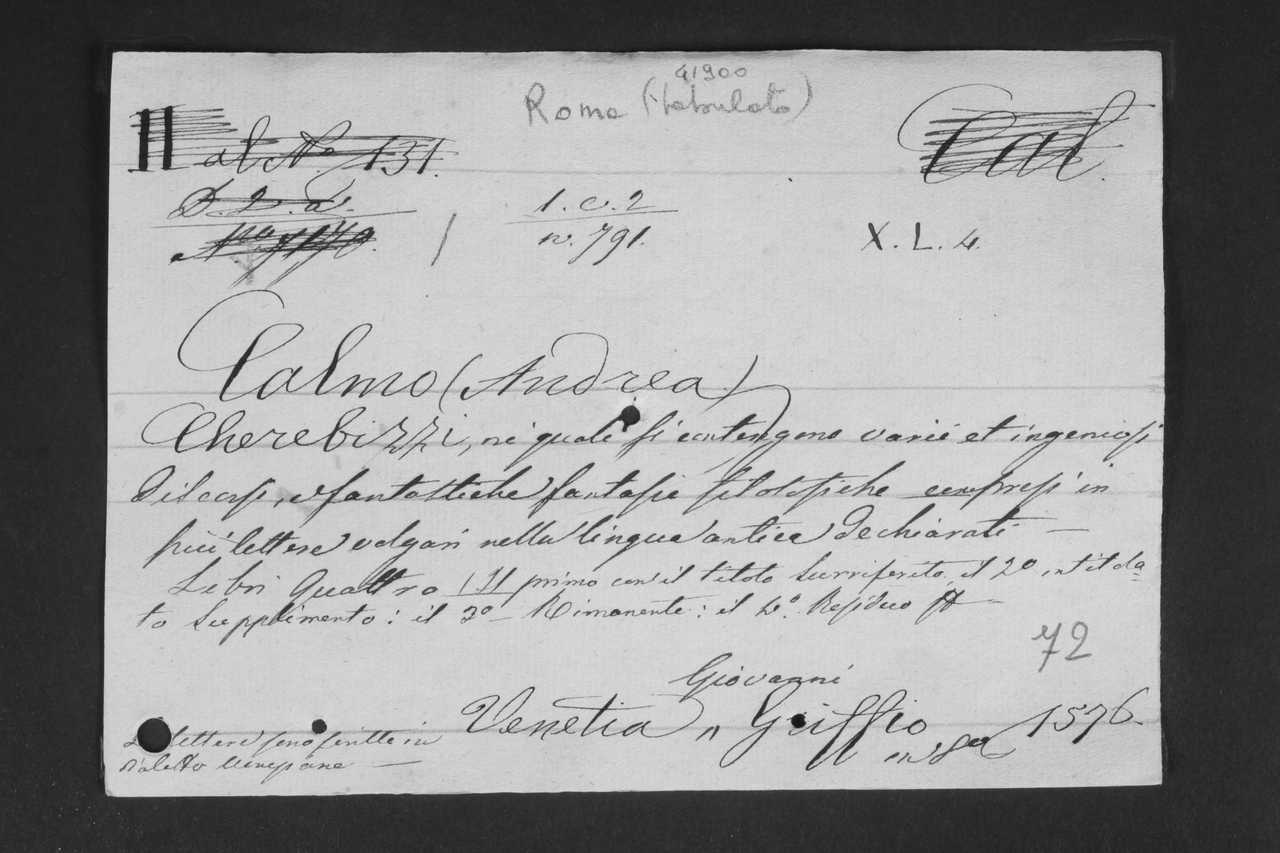 41900
Roma (tabulato)
H al No. 131.
Cal.
D. 2. a.
1. c. 2
n. 791.
X. L. 4.
Calmo (Andrea)
Cherebizzi, ne quali si contengono varii et ingeniosi
discorsi, e fantastiche fantasie filosofiche compresi in
più lettere volgari nella lingua antica dechiarati —
Libri Quattro, Il primo con il titolo surriferito, il 2º intitola=
to Supplimento: il 3º Rimanente: il 4º. Residuo
72
Giovanni
Venetia Griffio in 8º 1576.
Le lettere sono scritte in
dialetto veneziano —